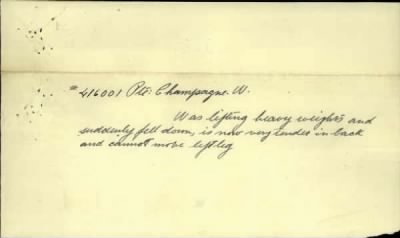 # 416001 Pte: Champagne. W.
Was lifting heavy weights and
suddenly fell down, is now very tender in back
and cannot move left leg